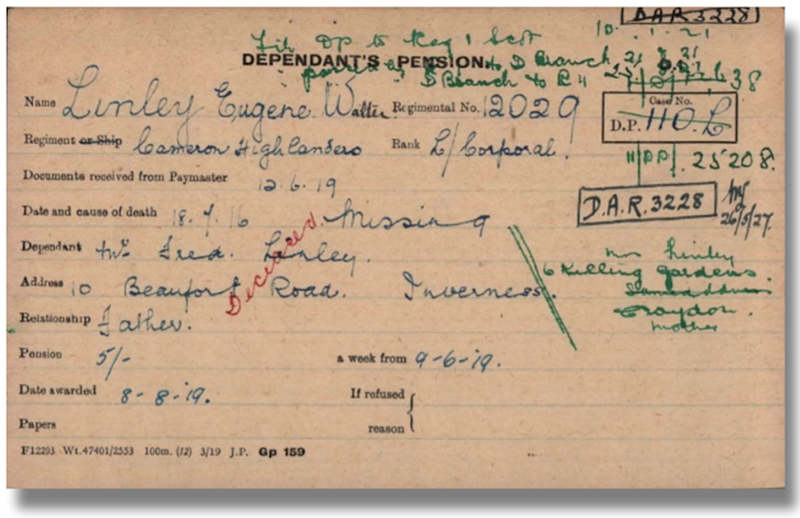 D.A.R. 3228
10. 1. 21
DEPENDANT'S PENSION.
D Branch 21 2 21
D Branch to
Name Linley Eugene Walter Regimental No. 12029
Case No.
D.P. 110.L
Regiment or Ship Cameron Highlanders Rank L/Corporal.
25208.
Documents received from Paymaster 12.6.19
D.A.R. 3228
26/5/27.
Date and cause of death 18.7.16 Missing
Dependant Mr Fred. Linley.
Deceased
Mrs Linley
Address 10 Beaufort Road. Inverness.
6 Killing Gardens.
Croydon.
Mother
Relationship Father.
Pension 5/- a week from 9-6-19.
Date awarded 8-8-19. If refused
Papers reason
F12293 Wt.47401/2553 100m. (12) 3/19 J.P. Gp 159